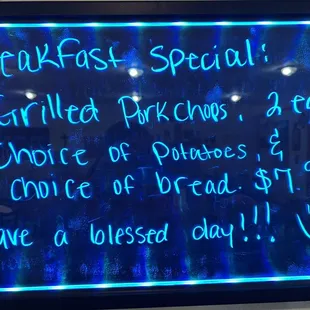 eakfast Special:
Grilled Porkchops, 2 e
Choice of Potatoes, &
choice of bread. $7.
ave a blessed day!!!